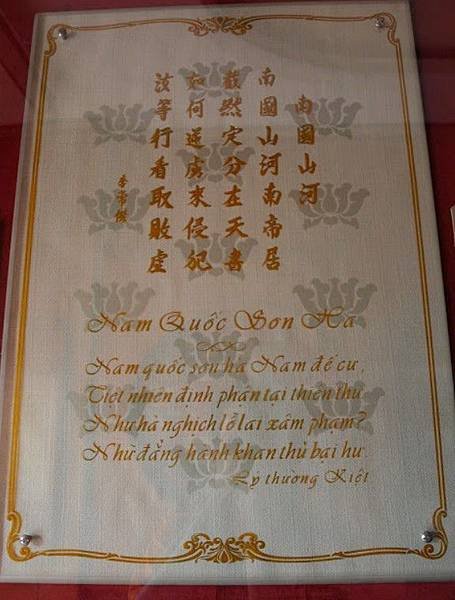 南國山河
南國山河南帝居
截然定分在天書
如何逆虜來侵犯
汝等行看取敗虛
李常傑
Nam Quốc Sơn Hà
Nam quốc sơn hà Nam đế cư,
Tiệt nhiên định phận tại thiên thư.
Như hà nghịch lỗ lai xâm phạm?
Nhữ đẳng hành khan thủ bại hư.
Lý thường Kiệt